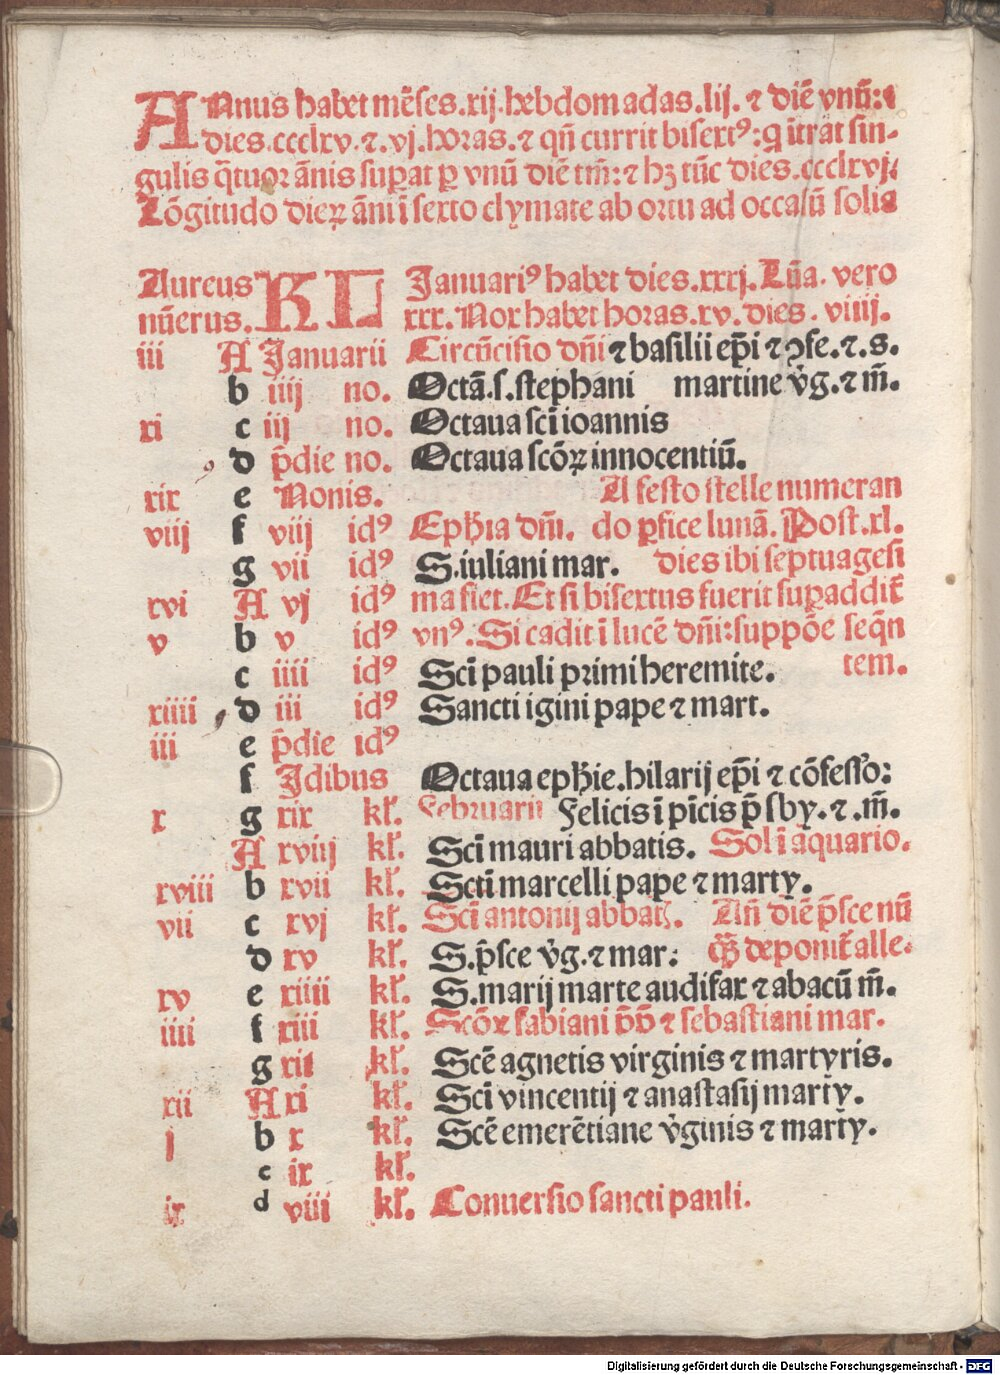 Annus habet mēses.xij.hebdomadas.lij. ⁊ diē vnū:
dies.ccclxv.⁊.vj.horas.⁊ qn̄ currit bisextꝰ:q̄ ītrat sin-
gulis q̄tuor ānis suꝑat ꝑ vnū diē tm̄:⁊ hꝫ tūc dies.ccclxvj:
Lōgitudo dieꝝ āni ī sexto clymate ab ortu ad occasū solis
Aureus KL Januariꝰ habet dies.xxxj.Lūa. vero
nūerus. xxx. Nox habet horas.xv.dies. viiij.
iii A Januarii Circūcisio dn̄i ⁊ basilii ep̄i ⁊ ꝯfe.⁊.s.
b iiij no. Octā.s.stephani martine v̄g.⁊ m̄.
xi c iij no. Octaua sci̅ ioannis
d p̄die no. Octaua scōꝝ innocentiū.
xix e Nonis. A festo stelle numeran
viij f viij idꝰ Eph̄ia dn̄i. do ꝑfice lunā. Post.xl.
g vii idꝰ S.iuliani mar. dies ibi septuagesi
xvi A vj idꝰ ma fiet. Et si bisextus fuerit suꝑaddit̄
v b v idꝰ vnꝰ. Si cadit ī lucē dn̄i:suppōe seq̄n
c iiii idꝰ Sci̅ pauli primi heremite. tem.
xiiii d iii idꝰ Sancti igini pape ⁊ mart.
iii e p̄die idꝰ
f Jdibus Octaua eph̄ie.hilarij ep̄i ⁊ cōfesso:
x g xix kł. Februarii Felicis ī pīcis p̄sby.⁊.m̄.
A xviij kł. Sci̅ mauri abbatis. Sol ī aquario.
xviii b xvii kł. Scti̅ marcelli pape ⁊ marty.
vii c xvj kł. Sci̅ antonij abbatꝭ. An̄ diē p̄sce nū
d xv kł. S.p̄sce v̄g.⁊ mar: qꝫ deponit̄ alle.
xv e xiiii kł. S.marij marte audifax ⁊ abacū m̄.
iiii f xiii kł. Scōꝝ fabiani p̄p̄ ⁊ sebastiani mar.
g xii kł. Scē agnetis virginis ⁊ martyris.
xii A xi kł. Sci̅ vincentij ⁊ anastasij marty.
j b x kł. Scē emerētiane v̄ginis ⁊ marty.
c ix kł.
ix d viii kł. Conuersio sancti pauli.
Digitalisierung gefördert durch die Deutsche Forschungsgemeinschaft - DFG